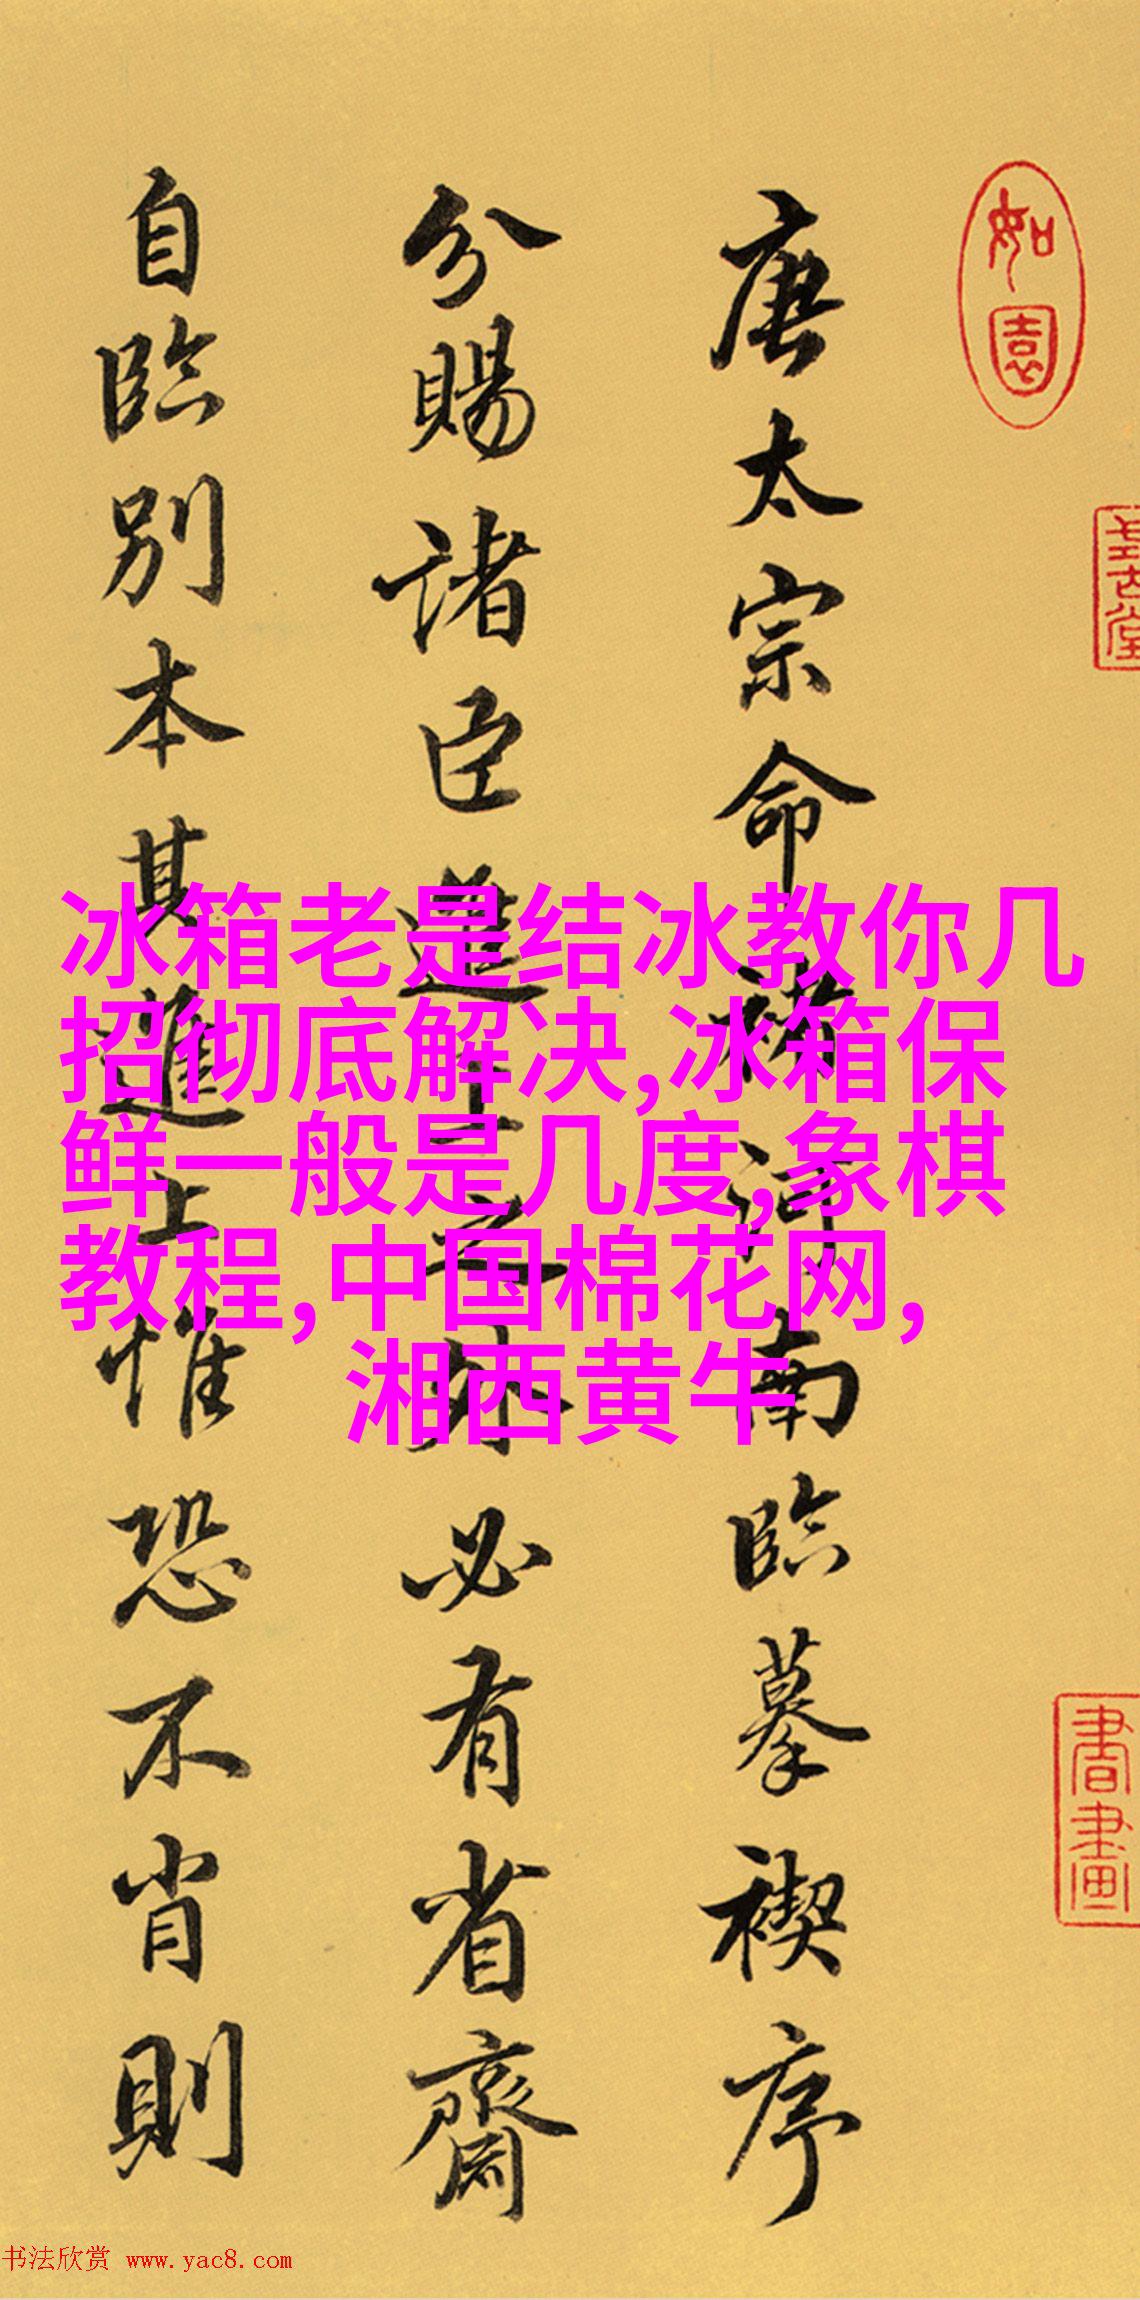 唐太宗命褚河南臨摹禊序
分賜諸臣進上之跡必有省齋
自臨別本其進上惟恐不肖則
如園
書畫
冰箱老是结冰教你几
招彻底解决,冰箱保
鲜一般是几度,象棋
教程,中国棉花网,
湘西黄牛
书法欣赏 www.yac8.com